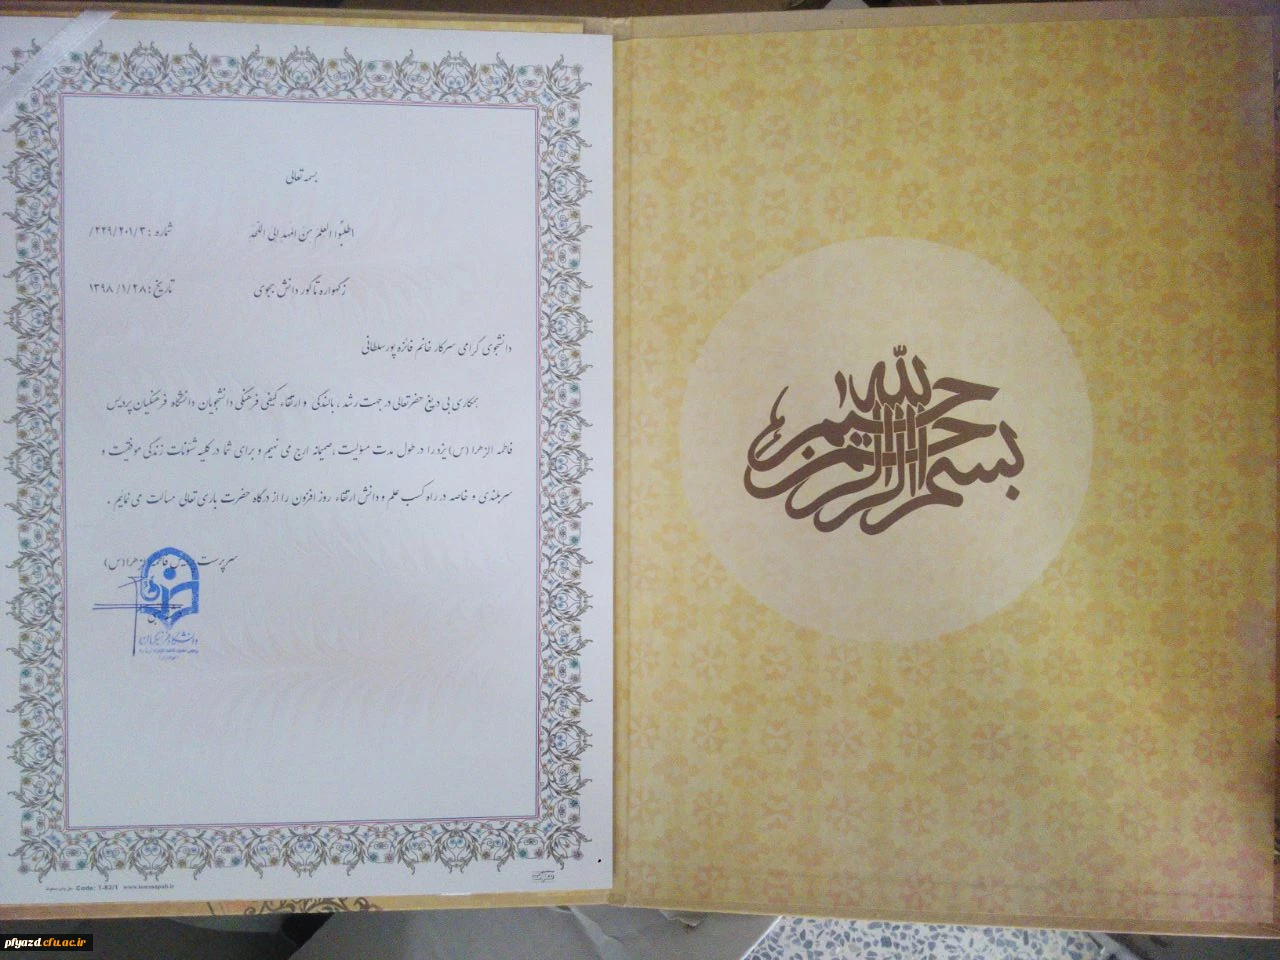 بسم الله الرحمن الرحیم
بسمه تعالی
اطلبُوا العِلمَ مِنَ المَهدِ اِلی اللَّحَدِ
شماره : ۲۲۹/۲۰۱/۳/
ز گهواره تا گور دانش بجوی
تاریخ : ۱۳۹۸/۱/۲۸
دانشجوی گرامی سرکار خانم فائزه پورسلطانی
همکاری بی دریغ حضرتعالی در جهت رشد ، بالندگی و ارتقاء کیفی فرهنگی دانشجویان دانشگاه فرهنگیان پردیس
فاطمه الزهرا (س) یزد را در طول مدت مسؤلیت ، صمیمانه ارج می نهیم و برای شما در کلیه شئونات زندگی موفقیت و
سربلندی و خاصه در راه کسب علم و دانش ارتقاء روز افزون را از درگاه حضرت باری تعالی مسالت می نمایم .
سرپرست پردیس فاطمه الزهرا (س)
دانشگاه فرهنگیان
Code: 1-82/1
pfyazd.cfu.ac.ir